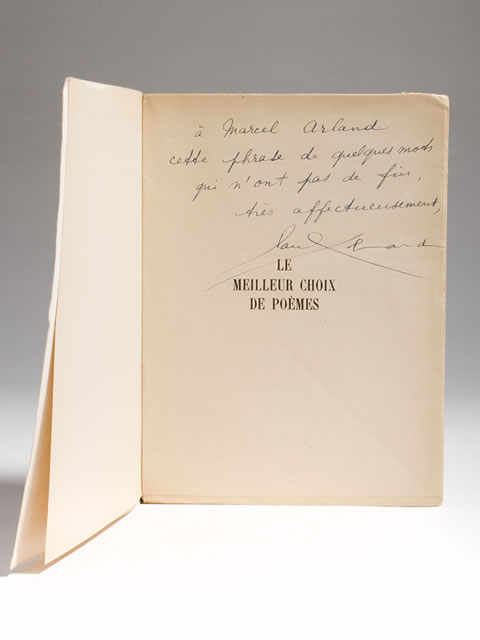 à Marcel Arland
cette phrase de quelques mots
qui n'ont pas de fin,
très affectueusement,
Paul Eluard
LE
MEILLEUR CHOIX
DE POÈMES